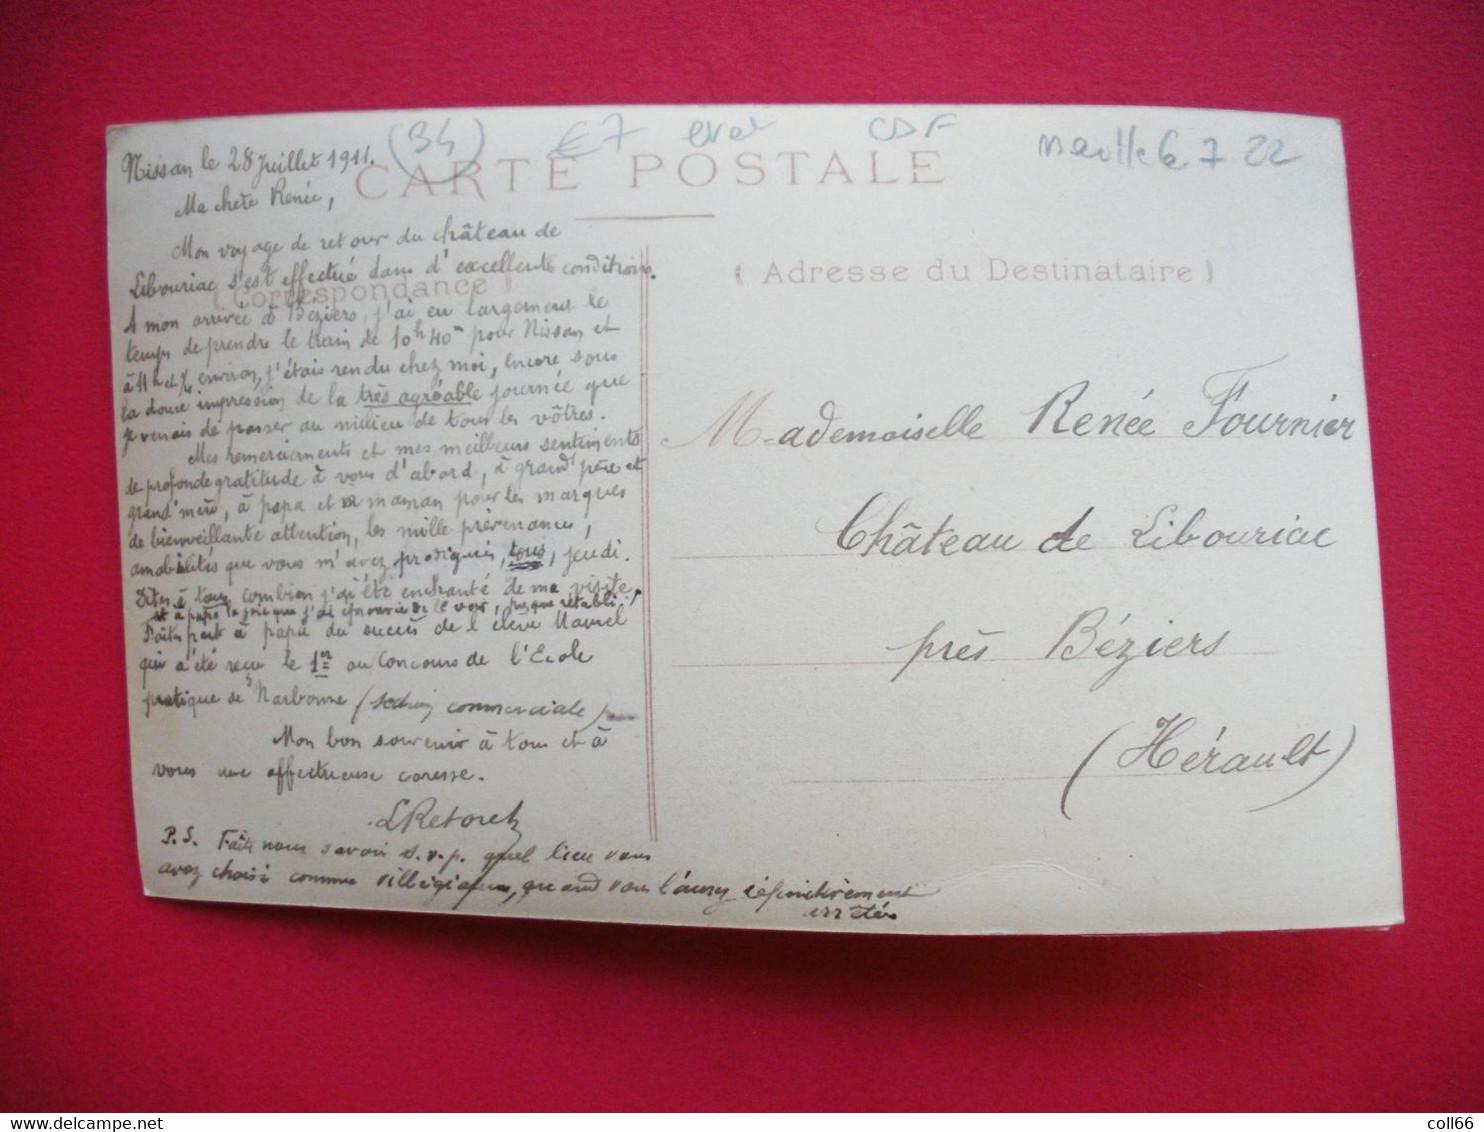 (34) €7 CDF
CARTE POSTALE
( Correspondance )
( Adresse du Destinataire )
Nissan le 28 Juillet 1911.
Ma chère Renée,
Mon voyage de retour du château de
Libouriac s'est effectué dans d'excellentes conditions.
A mon arrivée à Béziers, j'ai eu largement le
temps de prendre le train de 10h 40m pour Nissan et
à 11h et ½ environ, j'étais rendu chez moi, encore sous
la douce impression de la très agréable journée que
je venais de passer au milieu de tous les vôtres.
Mes remerciements et mes meilleurs sentiments
de profonde gratitude à vous d'abord, à grand'père et
grand'mère, à papa et à maman pour les marques
de bienveillante attention, les mille prévenances,
amabilités que vous m'avez prodigués, tous, jeudi.
Dites à tous combien j'ai été enchanté de ma visite,
et à papa la joie que j'ai éprouvée de le voir, presque rétabli.
Faites part à papa du succès de l'élève
qui a été reçu le 1er au Concours de l'Ecole
pratique de Narbonne (section commerciale)
Mon bon souvenir à tous et à
vous une affectueuse caresse.
L Retoret
P.S. Faites nous savoir s.v.p. quel lieu vous
avez choisi comme villégiature, quand vous l'aurez définitivement
arrêté.
Mademoiselle Renée Fournier
Château de Libouriac
près Béziers
(Hérault)
coll66